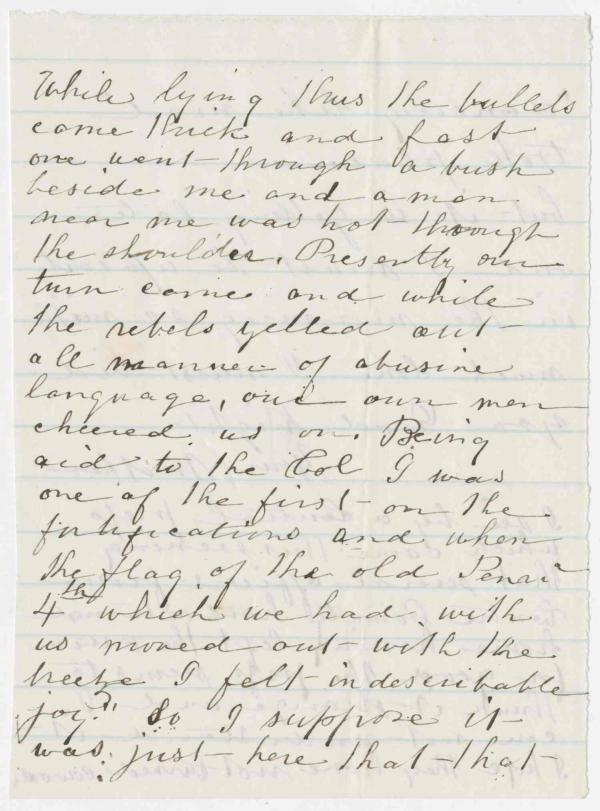 While lying thus the bullets
come thick and fast
one went through a bush
beside me and a man
near me was hot through
the shoulder. Presently our
turn came and while
the rebels yelled out
all manner of abusive
language, our own men
cheered us on. Being
aid to the Col I was
one of the first on the
fortifications and when
the flag of the old Penn
4th which we had with
us moved out with the
breeze I felt indescribable
joy." So I suppose it
was just here that that